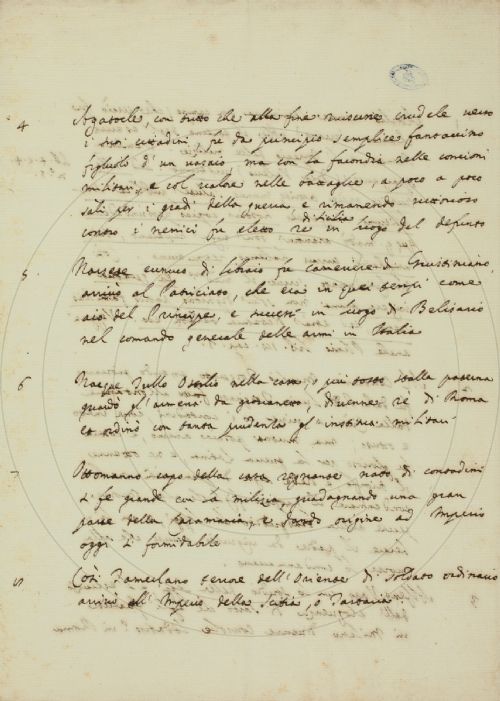 4 Agatocle, con tutto che alla fine riuscisse crudele verso
i suoi cittadini, fu da principio semplice fantaccino
figliuolo d'un vasaio, ma con la facondia nelle concioni
militari, e col valore nelle battaglie, a poco a poco
salì per i gradi della guerra e rimanendo vittorioso
di Sicilia
contro i nemici fu eletto re in luogo del defunto
5 Narsete eunuco di libraio fu cameriere di Giustiniano
arrivò al Patriciato, che era in quei tempi come
aio del Principe, e successe in luogo di Belisario
nel comando generale delle armi in Italia
6 Nacque Tullo Ostilio nella casa, o più tosto stalla pastoria
guardò gl'armenti da giovanetto, divenne re di Roma
et ordinò con tanta prudenza gl'instituti militari
7 Ottomanno capo della casa regnante nato di contadini
si fe grande con la milizia, guadagnando una gran
parte della Caramania, e dando origine ad Imperio
oggi sì formidabile
8 Così Tamerlano terrore dell'Oriente di soldato ordinario
arrivò all'Imperio della Scitia, o Tartaria.